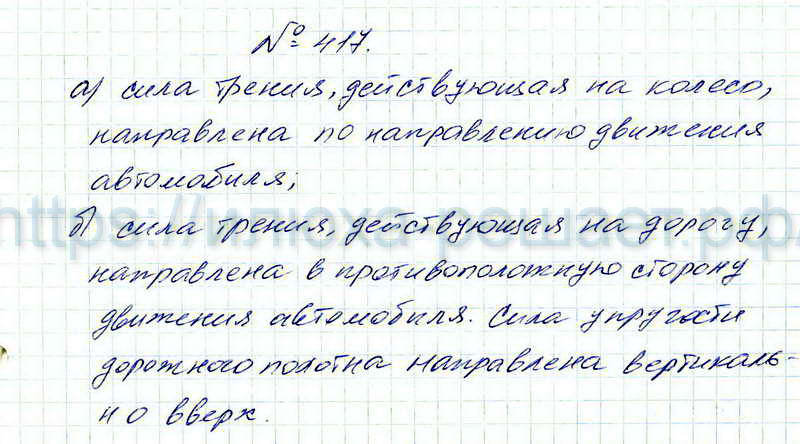 № 417.
а) сила трения, действующая на колесо,
направлена по направлению движения
автомобиля;
б) сила трения, действующая на дорогу,
направлена в противоположную сторону
движения автомобиля. Сила упругости
дорожного полотна направлена вертикаль-
но вверх.